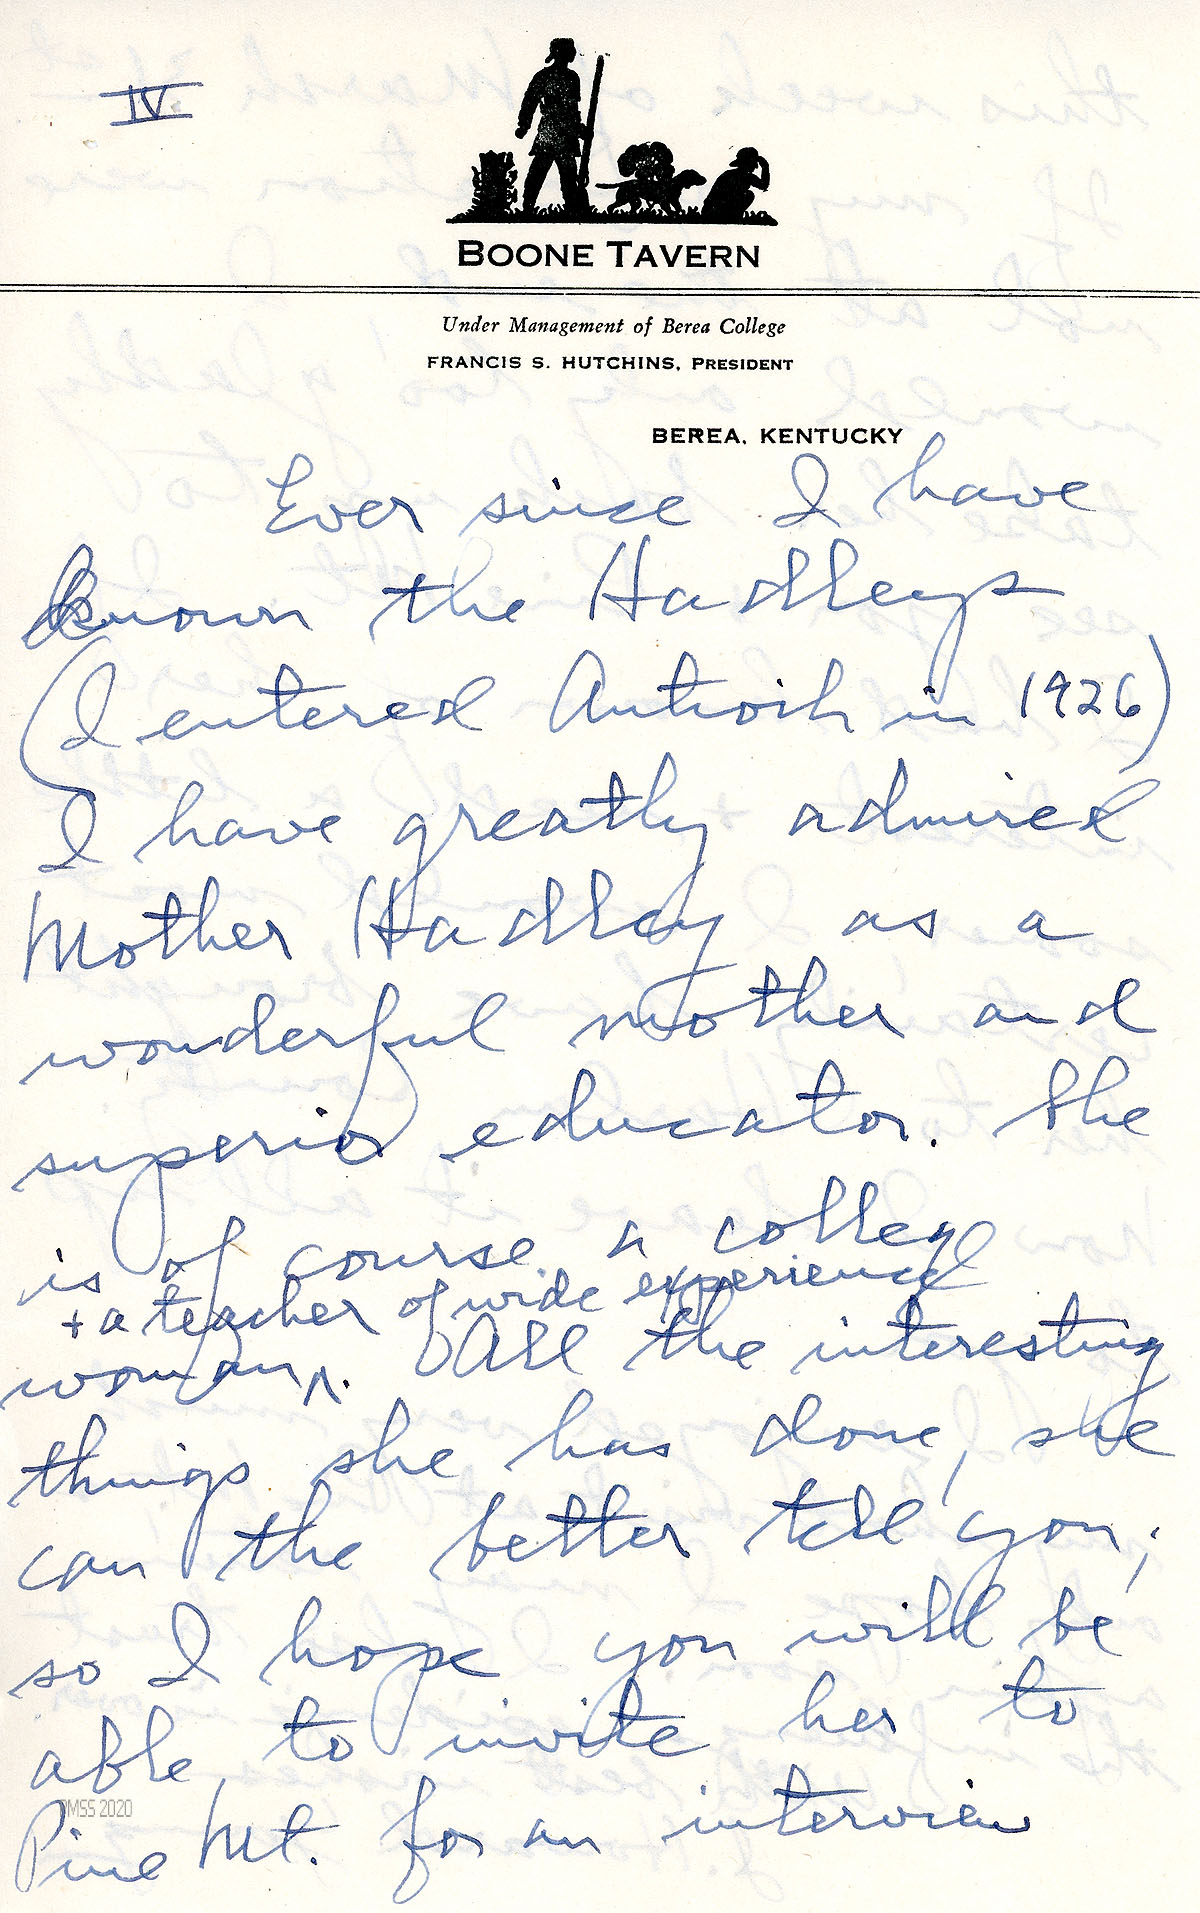 IV.
BOONE TAVERN
Under Management of Berea College
FRANCIS S. HUTCHINS, PRESIDENT
BEREA, KENTUCKY
Ever since I have
known the Hadleys
(I entered Antioch in 1926)
I have greatly admired
Mother Hadley as a
wonderful mother and
superior educator. She
is of course a college
+ a teacher of wide experience
woman ^. All the interesting
things she has done, she
can the better tell you;
so I hope you will be
able to invite her to
PMSS 2020
Pine Mt. for an interview